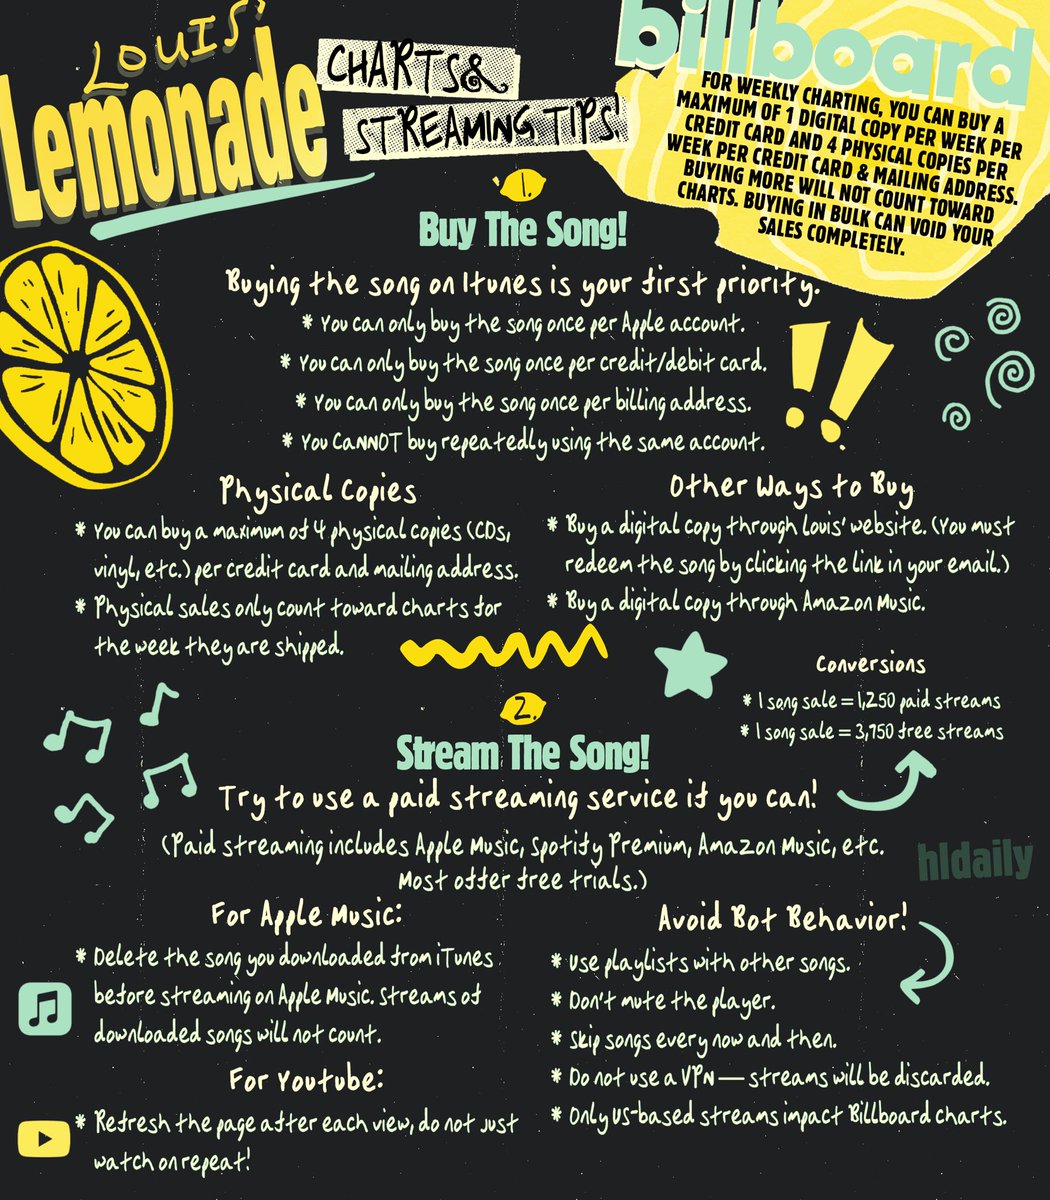 LOUIS'
Lemonade
CHARTS &
STREAMING TIPS!
billboard
FOR WEEKLY CHARTING, YOU CAN BUY A
MAXIMUM OF 1 DIGITAL COPY PER WEEK PER
CREDIT CARD AND 4 PHYSICAL COPIES PER
WEEK PER CREDIT CARD & MAILING ADDRESS.
BUYING MORE WILL NOT COUNT TOWARD
CHARTS. BUYING IN BULK CAN VOID YOUR
SALES COMPLETELY.
1.
Buy The Song!
Buying the song on Itunes is your first priority.
* You can only buy the song once per Apple account.
* You can only buy the song once per credit/debit card.
* You can only buy the song once per billing address.
* You CANNOT buy repeatedly using the same account.
Physical Copies
* You can buy a maximum of 4 physical copies (CDs,
vinyl, etc.) per credit card and mailing address.
* Physical sales only count toward charts for
the week they are shipped.
Other Ways to Buy
* Buy a digital copy through Louis' website. (You must
redeem the song by clicking the link in your email.)
* Buy a digital copy through Amazon Music.
Conversions
* 1 song sale = 1,250 paid streams
* 1 song sale = 3,750 free streams
2.
Stream The Song!
Try to use a paid streaming service if you can!
(Paid streaming includes Apple Music, Spotify Premium, Amazon Music, etc.
Most offer free trials.)
hldaily
For Apple Music:
* Delete the song you downloaded from iTunes
before streaming on Apple Music. Streams of
downloaded songs will not count.
For Youtube:
* Refresh the page after each view, do not just
watch on repeat!
Avoid Bot Behavior!
* Use playlists with other songs.
* Don't mute the player.
* Skip songs every now and then.
* Do not use a VPN — streams will be discarded.
* Only US-based streams impact Billboard charts.